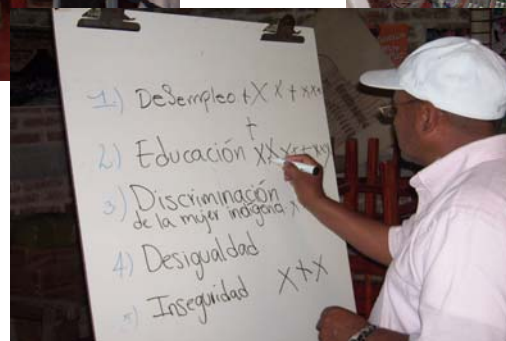 1) DeSempleo +X X + xxx
+
2) Educación XXX++xx
3) Discriminación
de la mujer indígena x
4) Desigualdad
5) Inseguridad X+X